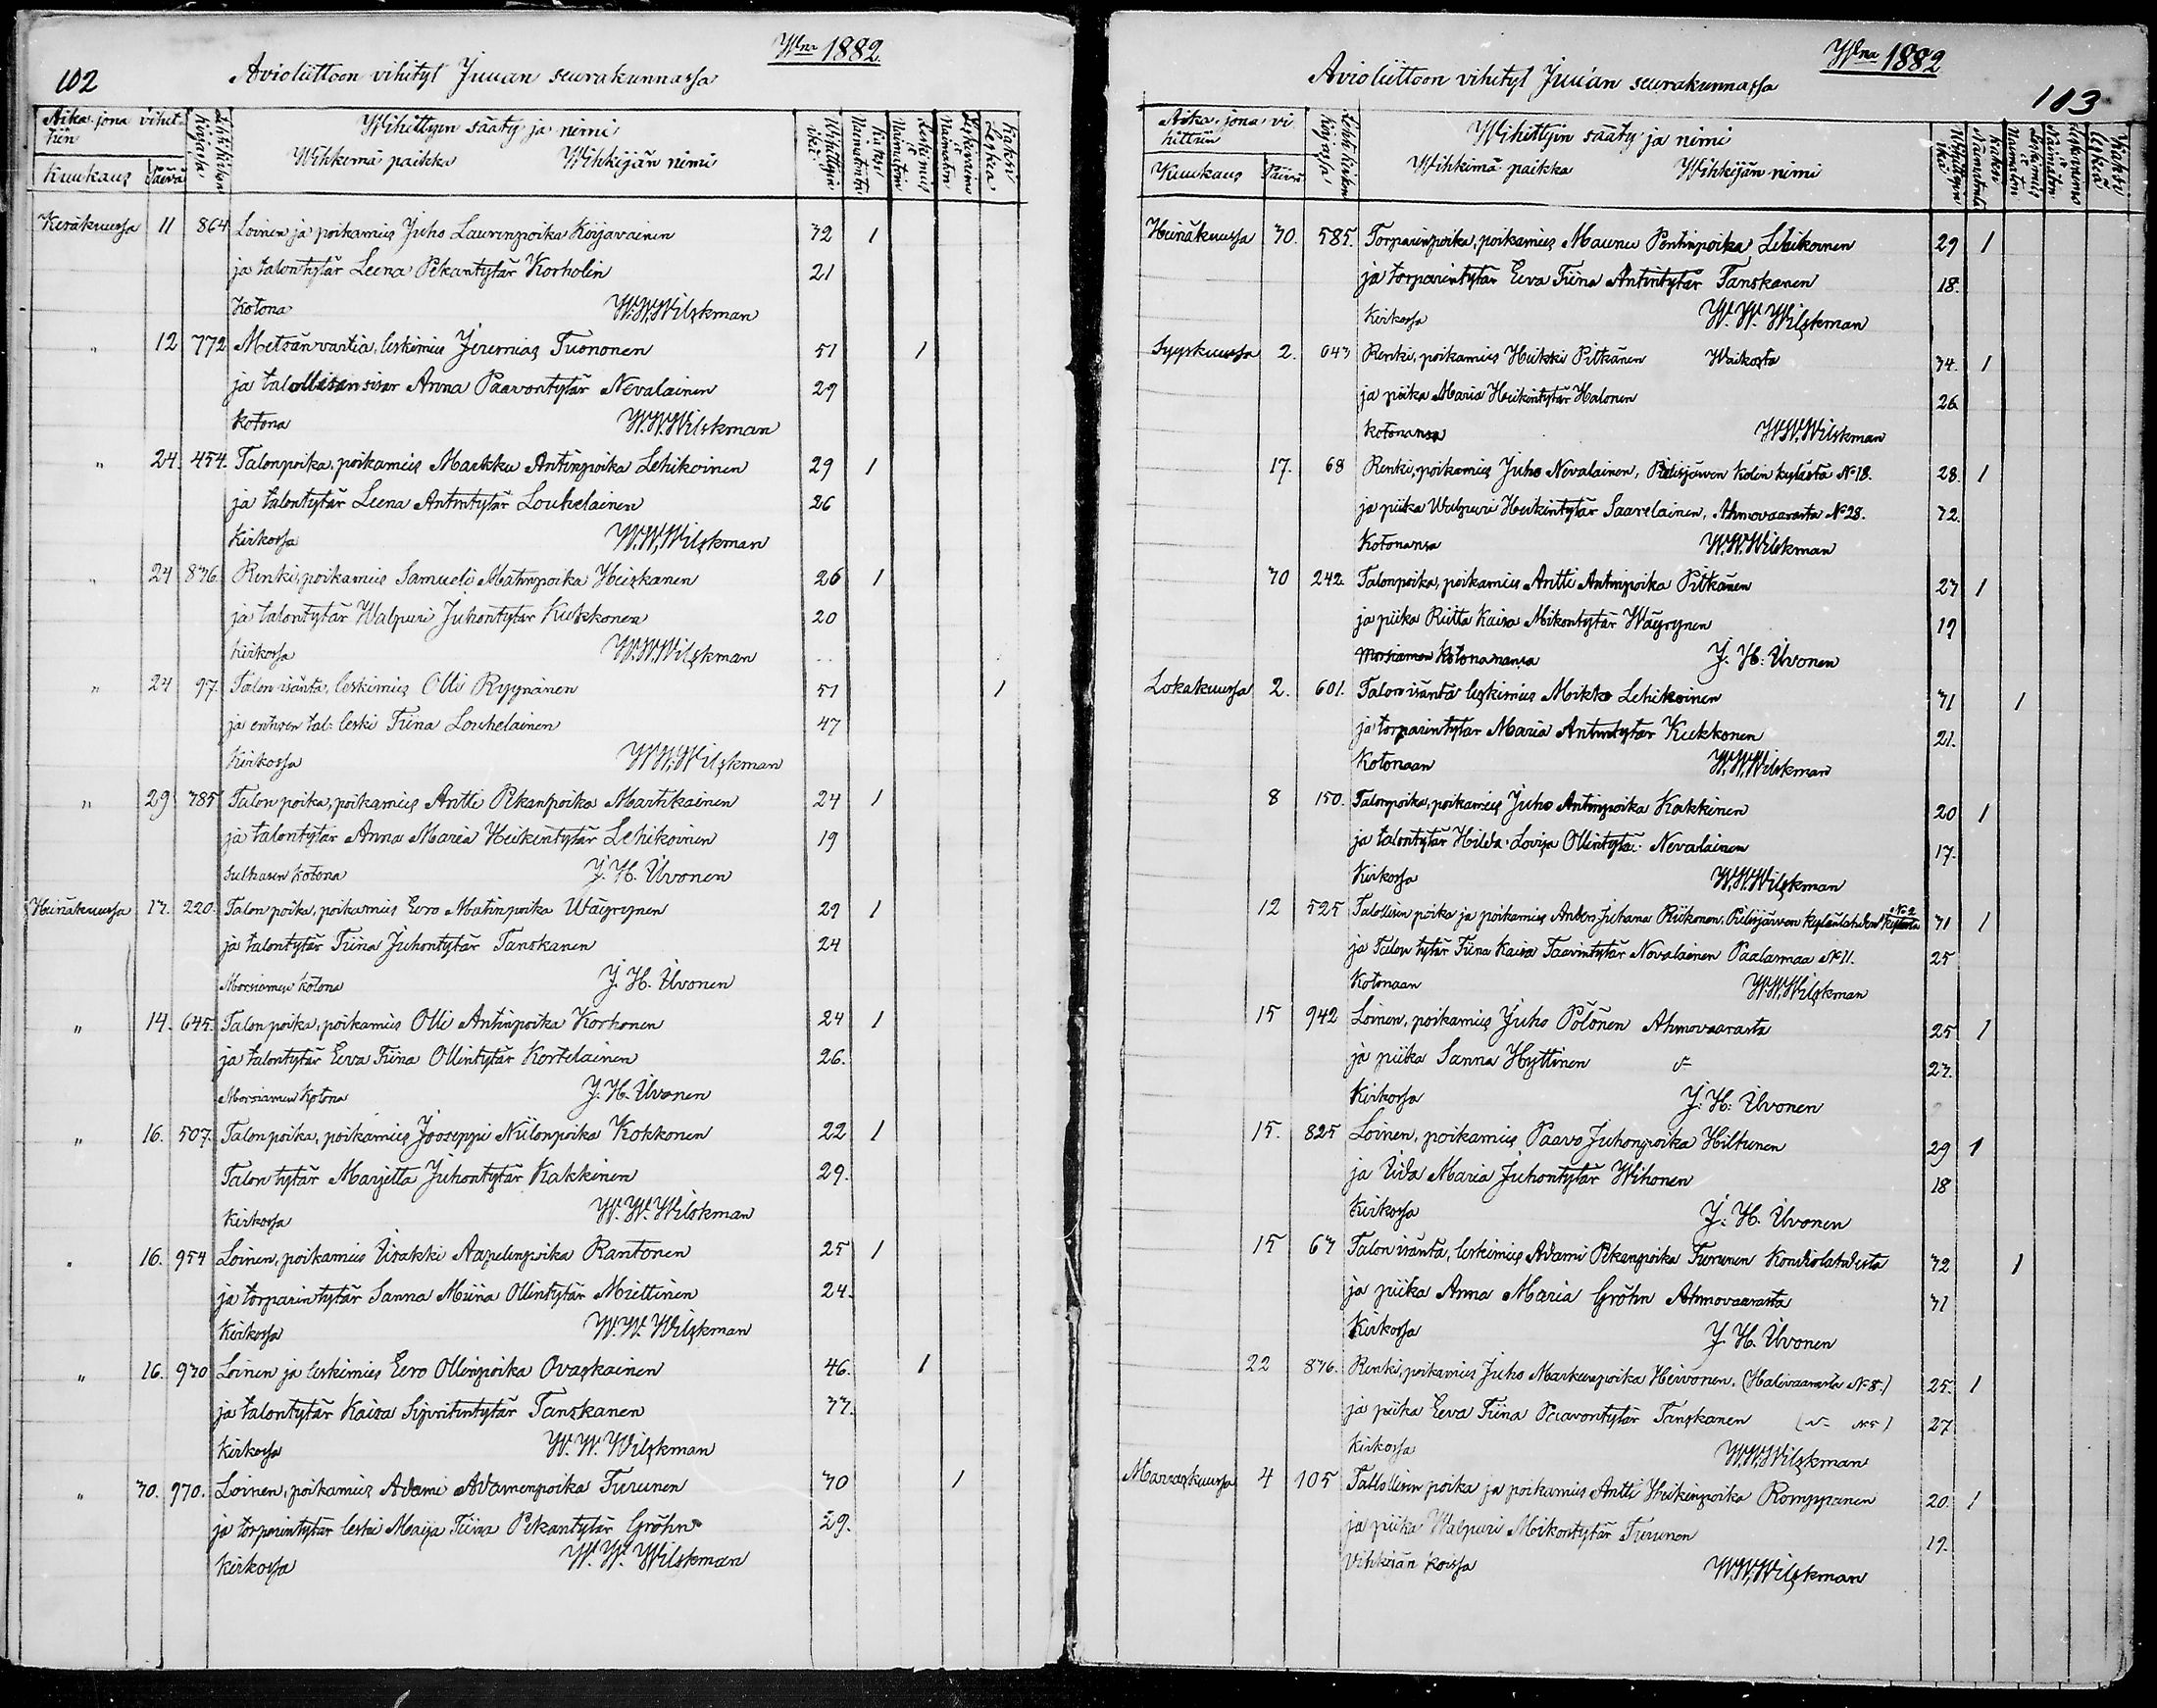 Wna 1882.
102 Avioliittoon vihityt Juuan seurakunnassa
Aika jona vihit- Wihittyin sääty ja nimi Kahsi
hiin Leskeä
Kuukaus Päivä Wihkimä paikka Wihkijän nimi
Kesäkuussa 11 864 Loinen ja poikamies Juho Laurinpoika Köijavainen 32 1
ja talontytär Leena Pekantytär Korholin 21
Kotona W.W.Wilskman
" 12 772 Metsänvartia, leskimies Jeremias Tuononen 51 1
ja talollisen sisar Anna Paavontytär Nevalainen 29
Kotona W.W.Wilskman
" 24. 454. Talonpoika, poikamies Markku Antinpoika Lehikoinen 29 1
ja talontytär Leena Antintytär Louhelainen 26
Kirkossa W.W.Wilskman
" 24 836. Renki, poikamies Samueli Matinpoika Heiskanen 26 1
ja talontytär Walpuri Juhontytär Kukkonen 20
Kirkossa W.W.Wilskman
" 24 97. Talon isäntä, leskimies Olli Ryynänen 51 1
ja entisen tal: leski Tiina Louhelainen 47
Kirkossa W.W.Wilskman
" 29 385 Talon poika, poikamies Antti Pekanpoika Martikainen 24 1
ja talontytär Anna Maria Heikintytär Lehikoinen 19
Sulhasen kotona J. H. Uvonen
Heinäkuussa 13. 220. Talon poika, poikamies Eero Matinpoika Wäyrynen 29 1
ja talontytär Tiina Juhontytär Tanskanen 24
Morsiamen kotona J. H. Uvonen
" 14. 645. Talon poika, poikamies Olli Antinpoika Korhonen 24 1
ja talontytär Eeva Tiina Ollintytär Kortelainen 26.
Morsiamen kotona J. H. Uvonen
" 16. 507. Talonpoika, poikamies Jooseppi Niilonpoika Kokkonen 22 1
Talon tytär Marjetta Juhontytär Kakkinen 29.
Kirkossa W. W. Wilskman
" 16. 954 Loinen, poikamies Iisakki Aapelinpoika Rantonen 25 1
ja torparintytär Sanna Miina Ollintytär Miettinen 24.
Kirkossa W. W. Wilskman
" 16. 930 Loinen ja leskimies Eero Ollinpoika Ovaskainen 46. 1
ja talontytär Kaisa Sipritintytär Tanskanen 33.
Kirkossa W. W. Wilskman
" 30. 970. Loinen, poikamies Adami Adaminpoika Turunen 30 1
ja torparintytär leski Maija Tiina Pekantytär Gröhn 29.
Kirkossa W. W. Wilskman
Wna 1882
Avioliittoon vihityt Juuan seurakunnassa 103
Aika jona vi Wihittyin sääty ja nimi
hittiin
Kuukaus Päivä Wihkimä paikka Wihkijän nimi
Heinäkuussa 30. 585. Torparinpoika, poikamies Maunu Pentinpoika Lehikoinen 29 1
ja torparintytär Eeva Tiina Antintytär Tanskanen 18.
Kirkossa W. W. Wilskman
Syyskuussa 2. 643 Renki, poikamies Heikki Pitkänen Waikosta 34. 1
ja piika Maria Heikintytär Halonen 26
Kotonansa W.W.Wilskman
17. 68 Renki, poikamies Juho Nevalainen, Pielisjärven Kolin kylästä № 18. 28. 1
ja piika Walpuri Heikintytär Saarelainen, Ahmovaarasta № 28. 32.
Kotonansa W.W.Wilskman
30 242 Talonpoika, poikamies Antti Antinpoika Pitkänen 23 1
ja piika Riitta Kaisa Mikontytär Wäyrynen 19
Morsiamen kotonansa J. H. Uvonen
Lokakuussa 2. 601. Talon isäntä leskimies Moikko Lehikoinen 31 1
ja torparintytär Maria Antintytär Kukkonen 21.
Kotonaan W.W.Wilskman
8 150. Talonpoika, poikamies Juho Antinpoika Kakkinen 20 1
ja talontytär Hilda Lovisa Ollintytä: Nevalainen 17.
Kirkossa W.W.Wilskman
12 525 Talollisen poika ja poikamies Anders Juhana Riikonen, Pielisjärven kylänlahden kylästä № 2 31 1
ja Talon tytär Tiina Kaisa Taavintytär Nevalainen Paalamaa № 11. 25
Kotonaan W.W.Wilskman
15 942 Loinen, poikamies Juho Pölönen Ahmovaarasta 25 1
ja piika Sanna Hyttinen 23.
Kirkossa J. H. Uvonen
15. 825 Loinen, poikamies Paavo Juhonpoika Hiltunen 29 1
ja Iida Maria Juhontytär Wihonen 18
Kirkossa J. H. Uvonen
15 63 Talon isäntä, leskimies Adami Pekanpoika Turunen Kontiolahdesta 32 1
ja piika Anna Maria Gröhn Ahmovaarasta 31
Kirkossa J. H. Uvonen
22 836. Renki, poikamies Juho Markunpoika Heivonen. (Halivaarasta № 8.) 25. 1
ja piika Eeva Tiina Paavontytär Tanskanen 27
Kirkossa W.W.Wilskman
Marraskuussa 4 105 Tallollisen poika ja poikamies Antti Heikinpoika Romppanen 20. 1
ja piika Walpuri Mikontytär Turunen 19.
Vihkiän koissa W.W.Wilskman